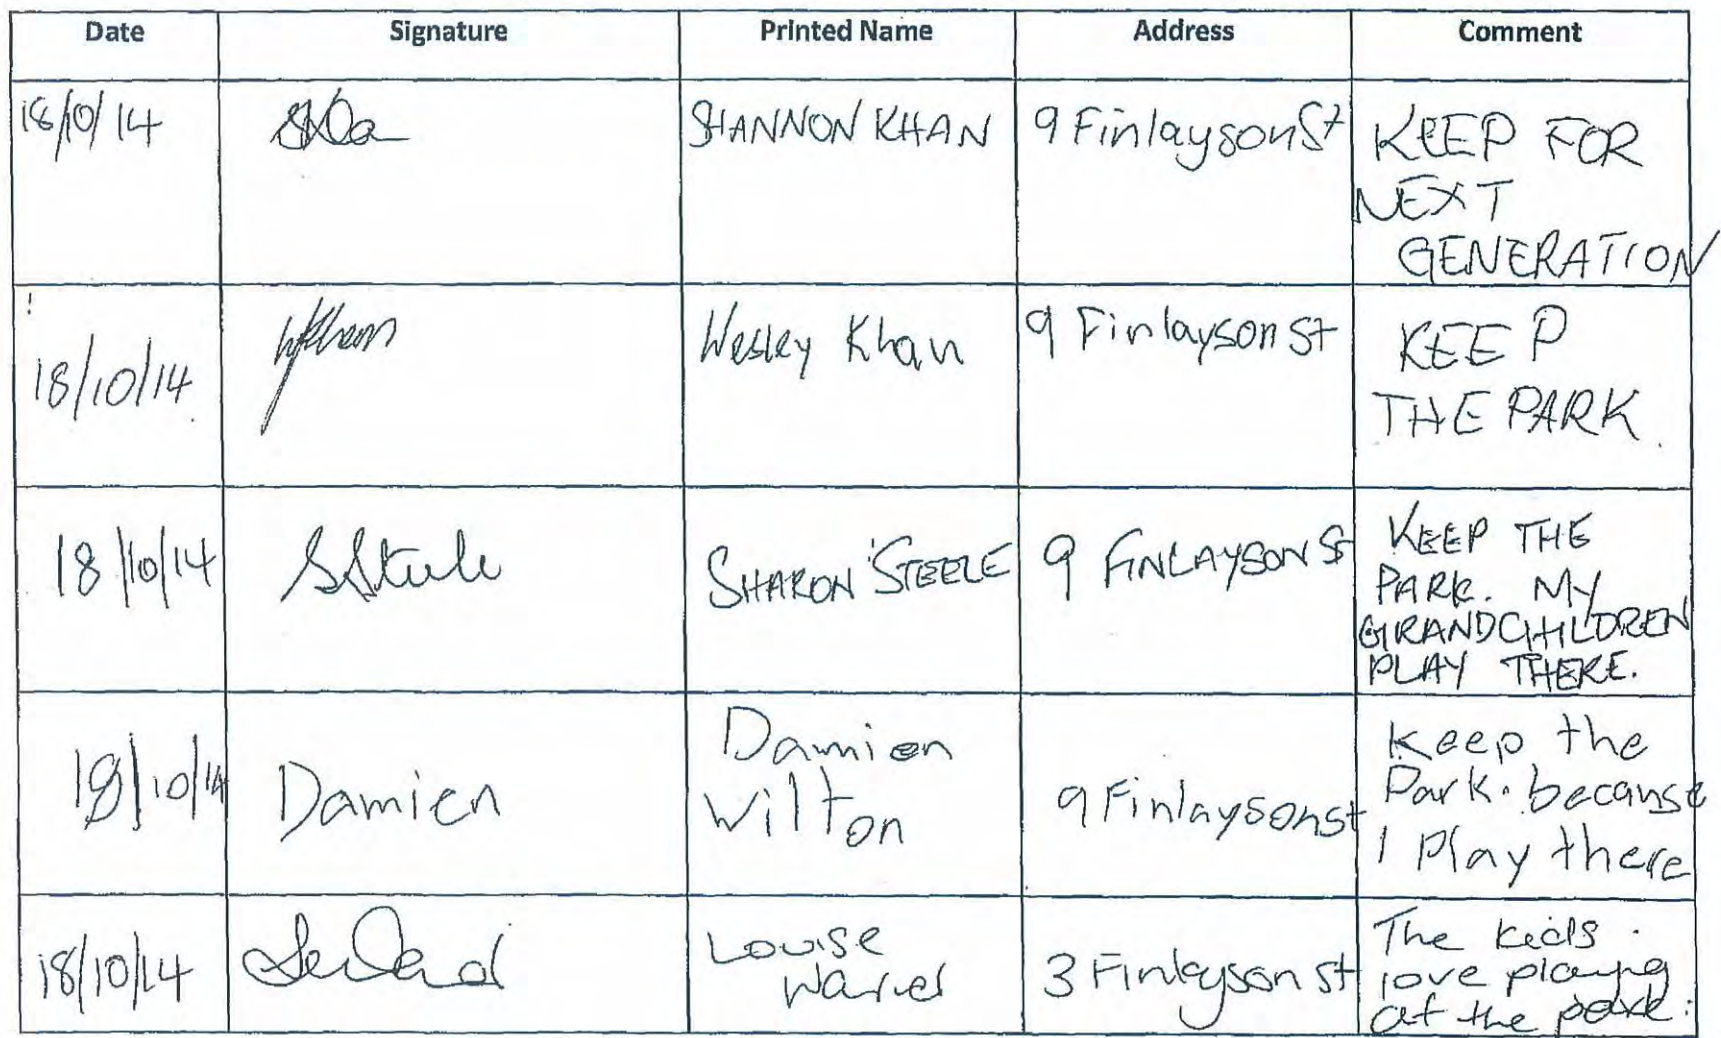 Date Signature Printed Name Address Comment
18/10/14 SHANNON KHAN 9 Finlayson St KEEP FOR
NEXT
GENERATION
18/10/14 Wesley Khan 9 Finlayson St KEEP
THE PARK.
18/10/14 SSteele SHARON STEELE 9 FINLAYSON St KEEP THE
PARK. MY
GRANDCHILDREN
PLAY THERE.
18/10/14 Damien Damien
Wilton 9 Finlayson st Keep the
Park. because
I Play there
18/10/14 Louise
3 Finlayson st The kids
love playing
at the park.